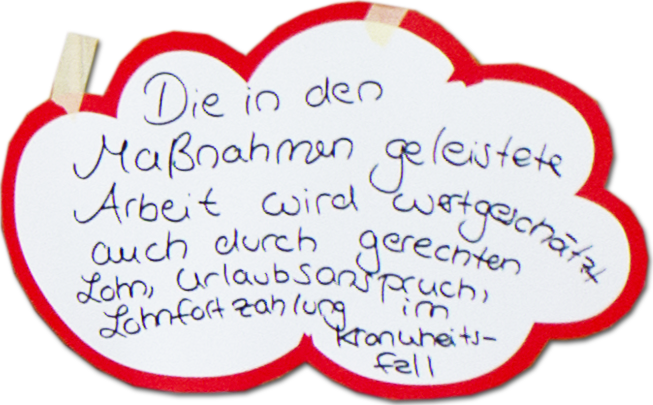 Die in den
Maßnahmen geleistete
Arbeit wird wertgeschätzt
auch durch gerechten
Lohn, Urlaubsanspruch,
Lohnfortzahlung im
Krankheits-
fall